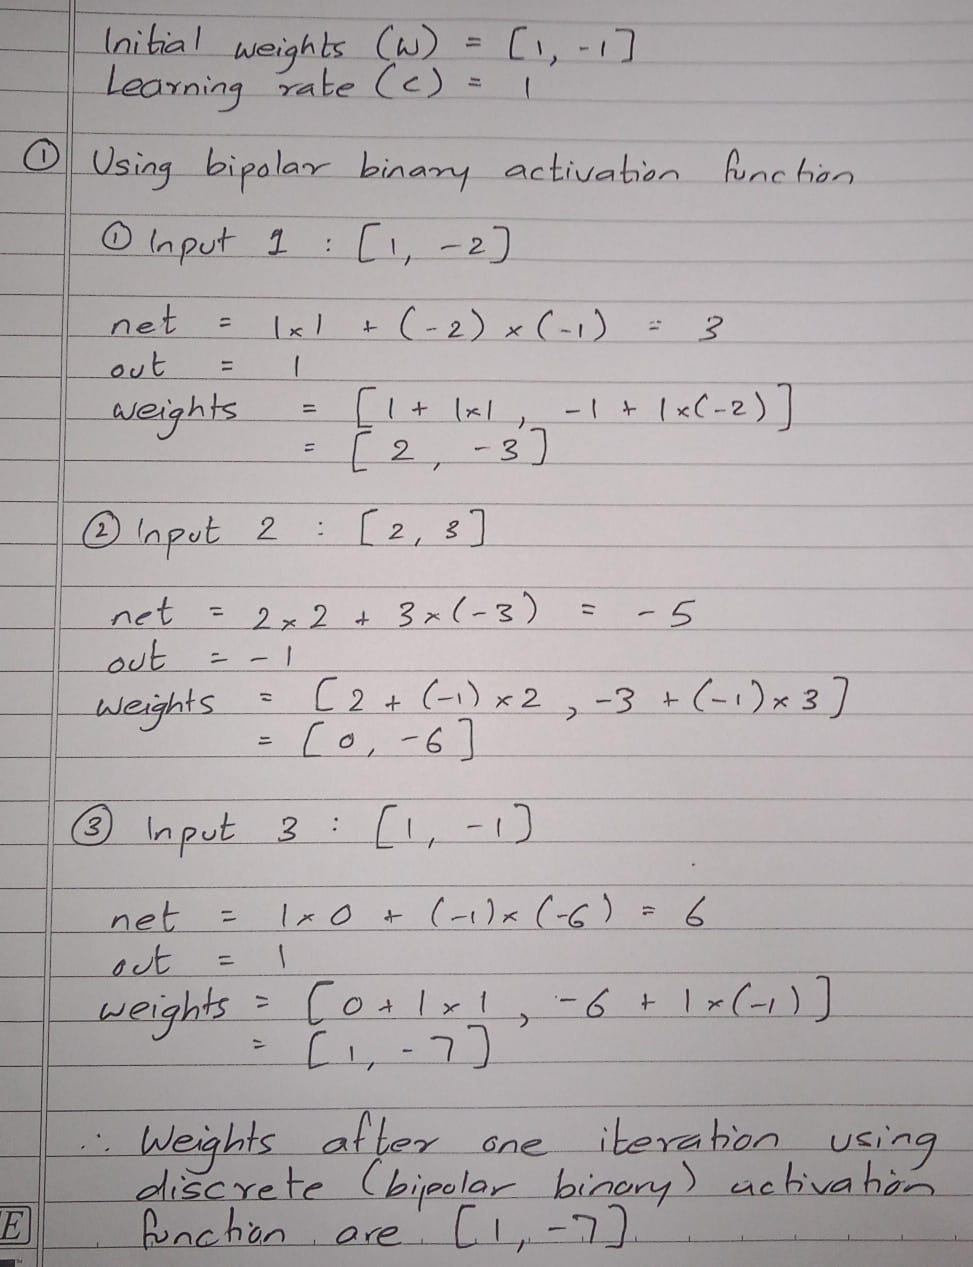 Initial weights (w) = [1, -1]
Learning rate (c) = 1
① Using bipolar binary activation function
① Input 1 : [1, -2]
net = 1×1 + (-2) × (-1) = 3
out = 1
weights = [1 + 1×1, -1 + 1×(-2)]
= [2, -3]
② Input 2 : [2, 3]
net = 2×2 + 3×(-3) = -5
out = -1
weights = [2 + (-1)×2, -3 + (-1)×3]
= [0, -6]
③ Input 3 : [1, -1]
net = 1×0 + (-1)×(-6) = 6
out = 1
weights = [0 + 1×1, -6 + 1×(-1)]
= [1, -7]
∴ Weights after one iteration using
discrete (bipolar binary) activation
function are [1, -7]
E